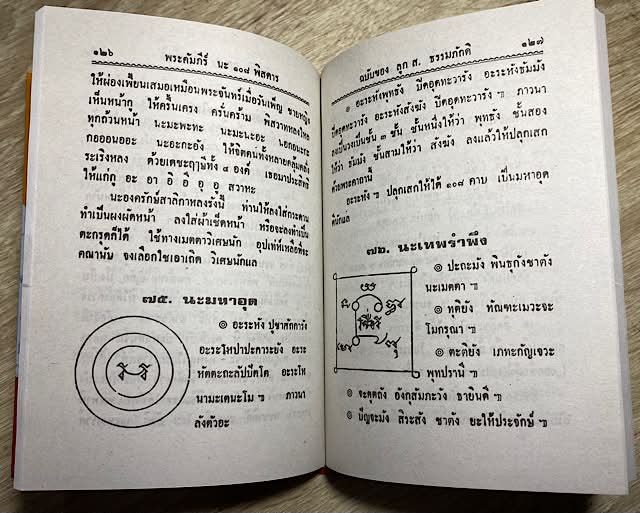 ๑๒๖ พระคัมภีร์ นะ ๑๐๘ พิสดาร
ให้ผ่องเพี้ยนเสมอเหมือนพระจันทร์เมื่อวันเพ็ญ ชายหญิง
เห็นหน้ากู ให้ครื้นเครง ครั่นคร้าม พิสวาทหลงใหล
ทุกถ้วนหน้า นะมะพะทะ นะมะนะอะ นอกอนะกะ
กอออนออะ นะอะกะอัง ให้จิตคนทั้งหลายคลุ้มคลั่ง
ระเริงหลง ด้วยเดชะฤาษีทั้ง ๘ องค์ เธอมาประสิทธิ
ให้แก่กู อะ อา อิ อี อุ อู สวาหะ
นะองครักษ์สาลิกาหลงรังนี้ ท่านให้ลงใส่กระดาน
ทำเป็นผงผัดหน้า ลงใส่ผ้าเช็ดหน้า หรือจะลงทำเป็น
ตะกรุดก็ได้ ใช้ทางเมตตาวิเศษนัก อุปเท่ห์เหลือที่จะ
คณานับ จงเลือกใชเอาเถิด วิเศษนักแล
๗๕. นะมหาอุด
๏ อะระหัง ปุชาสักการัง
อะระโหปาปะการะยัง อะระ
หัตตะถะสัปปัตโต อะระโห
นามะเตนะโม ฯ ภาวนา
ลังตัวอะ
ฉบับของ ลุก ส. ธรรมภักดี ๑๒๗
๏ อะระหังพุทธัง ปิดอุดทะวารัง อะระหังธัมมัง
ปิดอุดทะวารัง อะระหังสังฆัง ปิดอุดทะวารัง ฯ ภาวนา
ลงเป็นวงเป็นชั้น ๓ ชั้น ชั้นหนึ่งให้ว่า พุทธัง ชั้นสอง
ให้ว่า ธัมมัง ชั้นสามให้ว่า สังฆัง ลงแล้วให้ปลุกเสก
ด้วยพระคาถานี้
อะระหัง ฯ ปลุกเสกให้ได้ ๑๐๘ คาบ เป็นมหาอุด
ดีนักแล
๗๖. นะเทพรำพึง
๏ ปะถะมัง พินธุกังชาตัง
นะเมตตา ฯ
๏ ทุติยัง ทัณฑะเมวะจะ
โมกรณา ฯ
๏ ตะติยัง เภทะกัญเจวะ
พุทปรานี ฯ
๏ จะตุตถัง อังกุสัมภะวัง ธายินดี ฯ
๏ ปัญจะมัง สิระสัง ชาตัง ยะให้ประจักษ์ ฯ